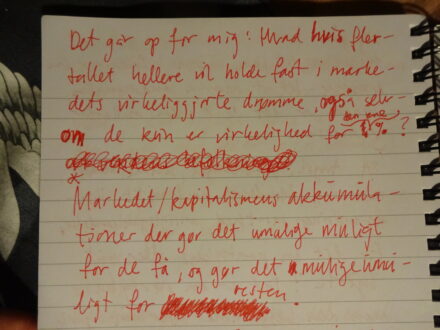 Det går op for mig: Hvad hvis fler-
tallet hellere vil holde fast i marke-
dets virkeliggjorte drømme, også selv-
om de kun er virkelighed for den ene %?
*
Markedet/kapitalismens akkumula-
tioner der gør det umulige muligt
for de få, og gør det mulige umu-
ligt for resten.